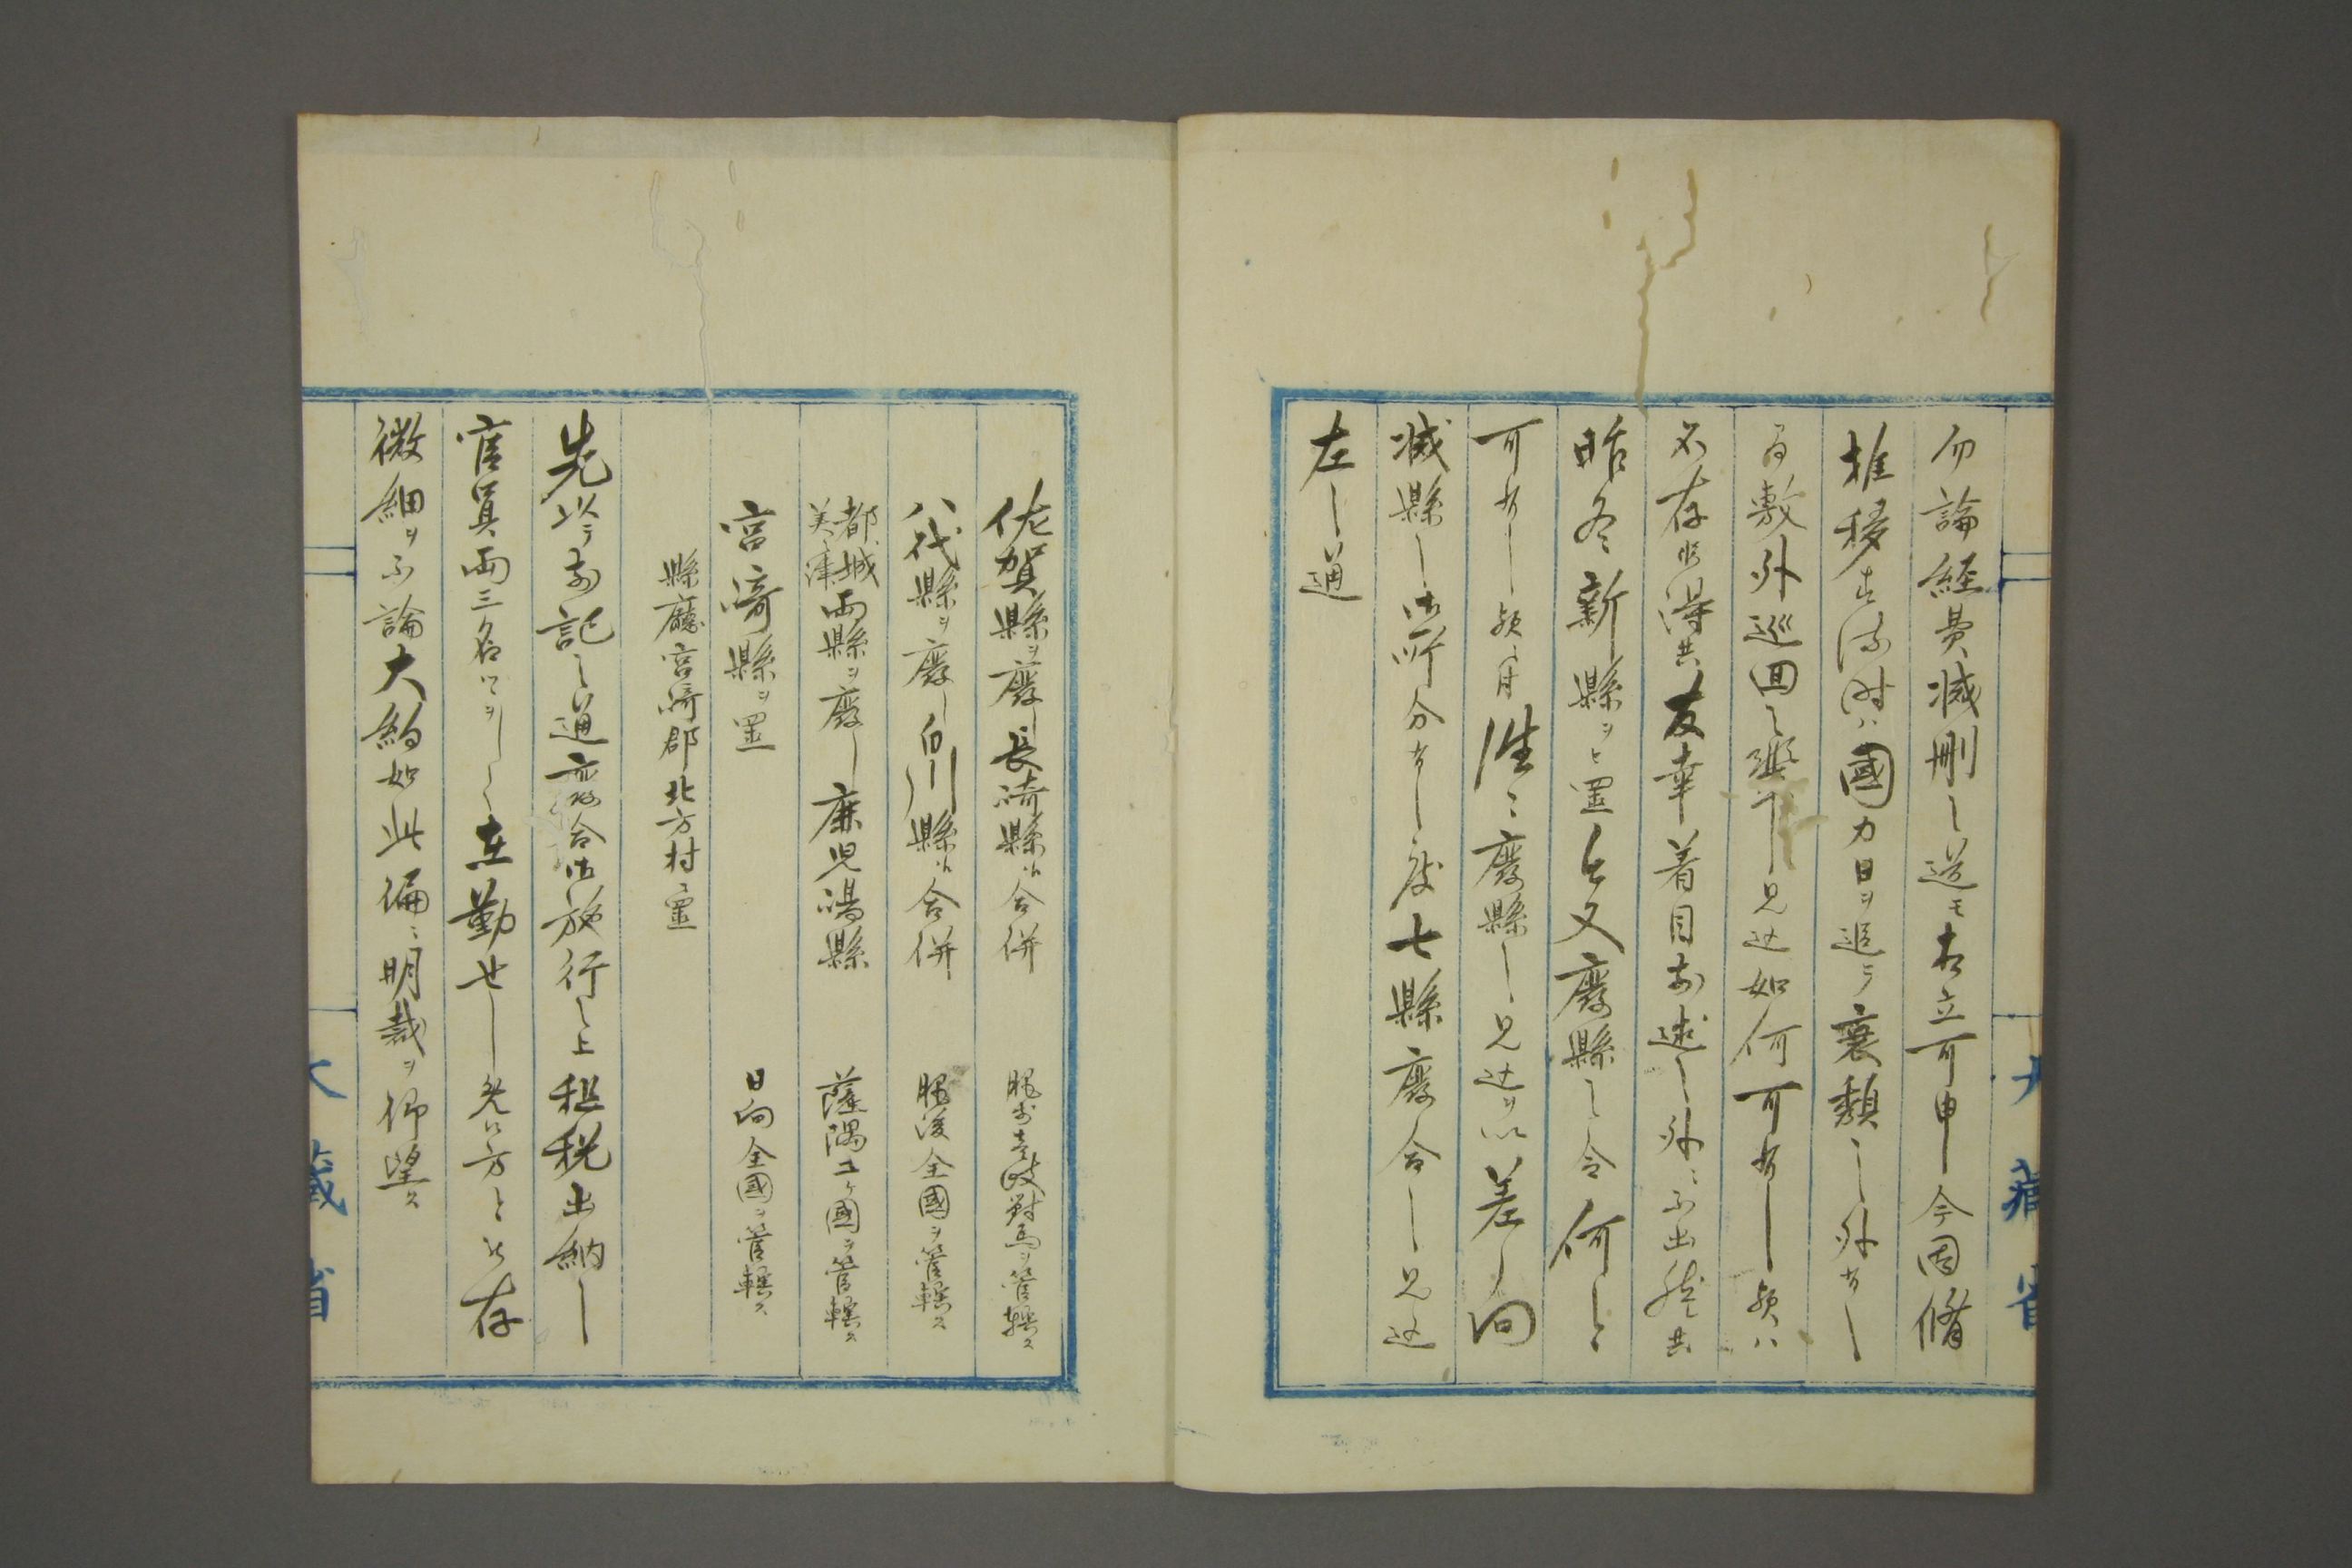 勿論経費減刪之道モ相立可申今因循
推移スル時ハ國力日ヲ追テ衰頽之外有之
敷外巡回之 見込如何可有之哉ハ
不存候得共友幸着目前述之外ニ不出然共
昨冬新縣ヲ置今又廢縣之令何之
可有之哉ニ付 廢縣之見込ヲ以差向
減縣之御所分有之度七縣廢合之見込
左之通
佐賀縣ヲ廢シ長崎縣ヘ合併 肥前壹岐對馬ヲ管轄ス
八代縣ヲ廢シ白川縣ヘ合併 肥後全國ヲ管轄ス
都ノ城美々津両縣ヲ廢シ鹿児島縣 薩隅二ヶ國ヲ管轄ス
宮崎縣ヲ置 日向全國ヲ管轄ス
縣廳宮崎郡北方村ニ置
先以テ前記之通廢合御施行之上租税出納之
官員両三名ツヽヲシテ在勤セシメ候方ト被存
微細ヲ不論大約如此偏ニ明裁ヲ仰望ス
大藏省
大藏省